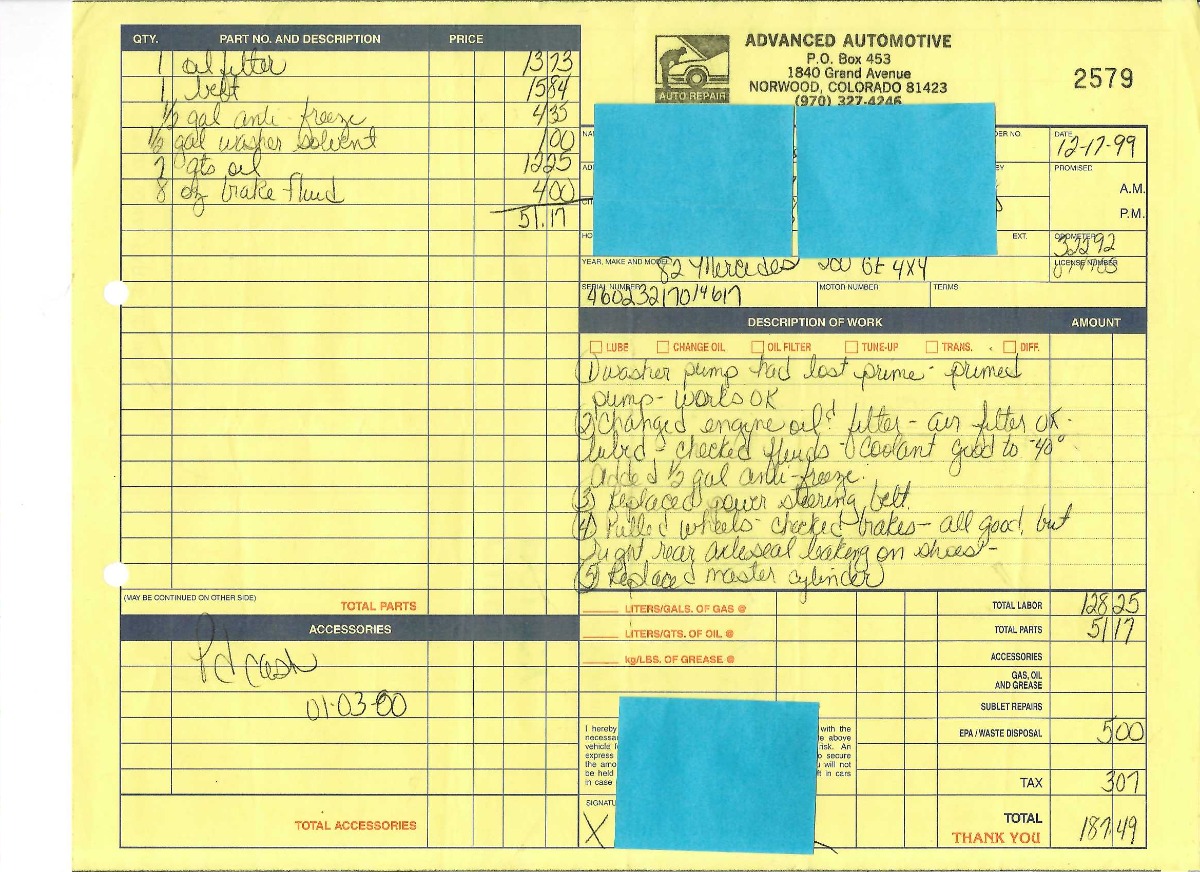 QTY. PART NO. AND DESCRIPTION PRICE
1 oil filter 13 73
1 belt 15 84
1/2 gal anti-freeze 4 35
1/2 gal washer solvent 1 00
7 qts oil 12 25
8 oz brake fluid 4 00
51.17
(MAY BE CONTINUED ON OTHER SIDE)
TOTAL PARTS
ACCESSORIES
Pd cash
01-03-00
TOTAL ACCESSORIES
AUTO REPAIR
ADVANCED AUTOMOTIVE
P.O. Box 453
1840 Grand Avenue
NORWOOD, COLORADO 81423
(970) 327-4246
2579
DATE
12-17-99
PROMISED
A.M.
P.M.
EXT.
ODOMETER
32292
YEAR, MAKE AND MODEL
82 Mercedes GE 4X4
LICENSE NUMBER
SERIAL NUMBER
46023217014617
MOTOR NUMBER
TERMS
DESCRIPTION OF WORK AMOUNT
LUBE CHANGE OIL OIL FILTER TUNE-UP TRANS. DIFF.
① washer pump had lost prime - primed
pump - works OK
② Changed engine oil & filter - air filter OK -
lubed - checked fluids - Coolant good to -40°
Added 1/2 gal anti-freeze.
③ Replaced power steering belt.
④ Pulled wheels - checked brakes - all good, but
right rear axle seal leaking on shoes -
⑤ Replaced master cylinder
LITERS/GALS. OF GAS @
LITERS/QTS. OF OIL @
kg/LBS. OF GREASE @
TOTAL LABOR 128 25
TOTAL PARTS 51 17
ACCESSORIES
GAS, OIL
AND GREASE
SUBLET REPAIRS
EPA / WASTE DISPOSAL 5 00
TAX 3 07
TOTAL 187.49
THANK YOU
I hereby with the
necessar above
vehicle risk. An
express to secure
the amo will not
be held in cars
in case
X